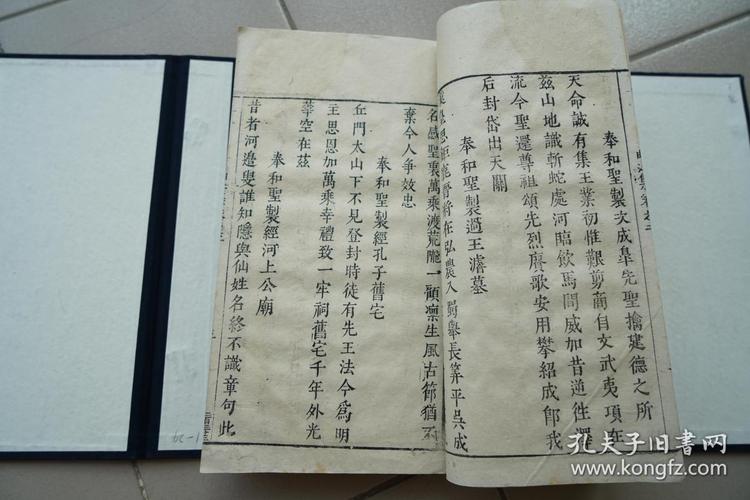 奉和聖製次成皋先聖擒建德之所
天命誠有集王業初惟艱剪商自文武夷項在
茲山地識斬蛇處河臨飲馬間威加昔逆往澤
流今聖還尊祖頌先烈賡歌安用攀紹成卽我
后封岱出天關
奉和聖製過王濬墓
將在弘農入蜀舉長筭平吳成
名感聖衷萬乘渡荒隴一顧凜生風古節猶不
棄今人爭效忠
奉和聖製經孔子舊宅
丘門太山下不見登封時徒有先王法今爲明
主思恩加萬乘幸禮致一牢祠舊宅千年外光
華空在茲
奉和聖製經河上公廟
昔者河邊叟誰知隱與仙姓名終不識章句此
孔夫子旧书网
www.kongfz.com